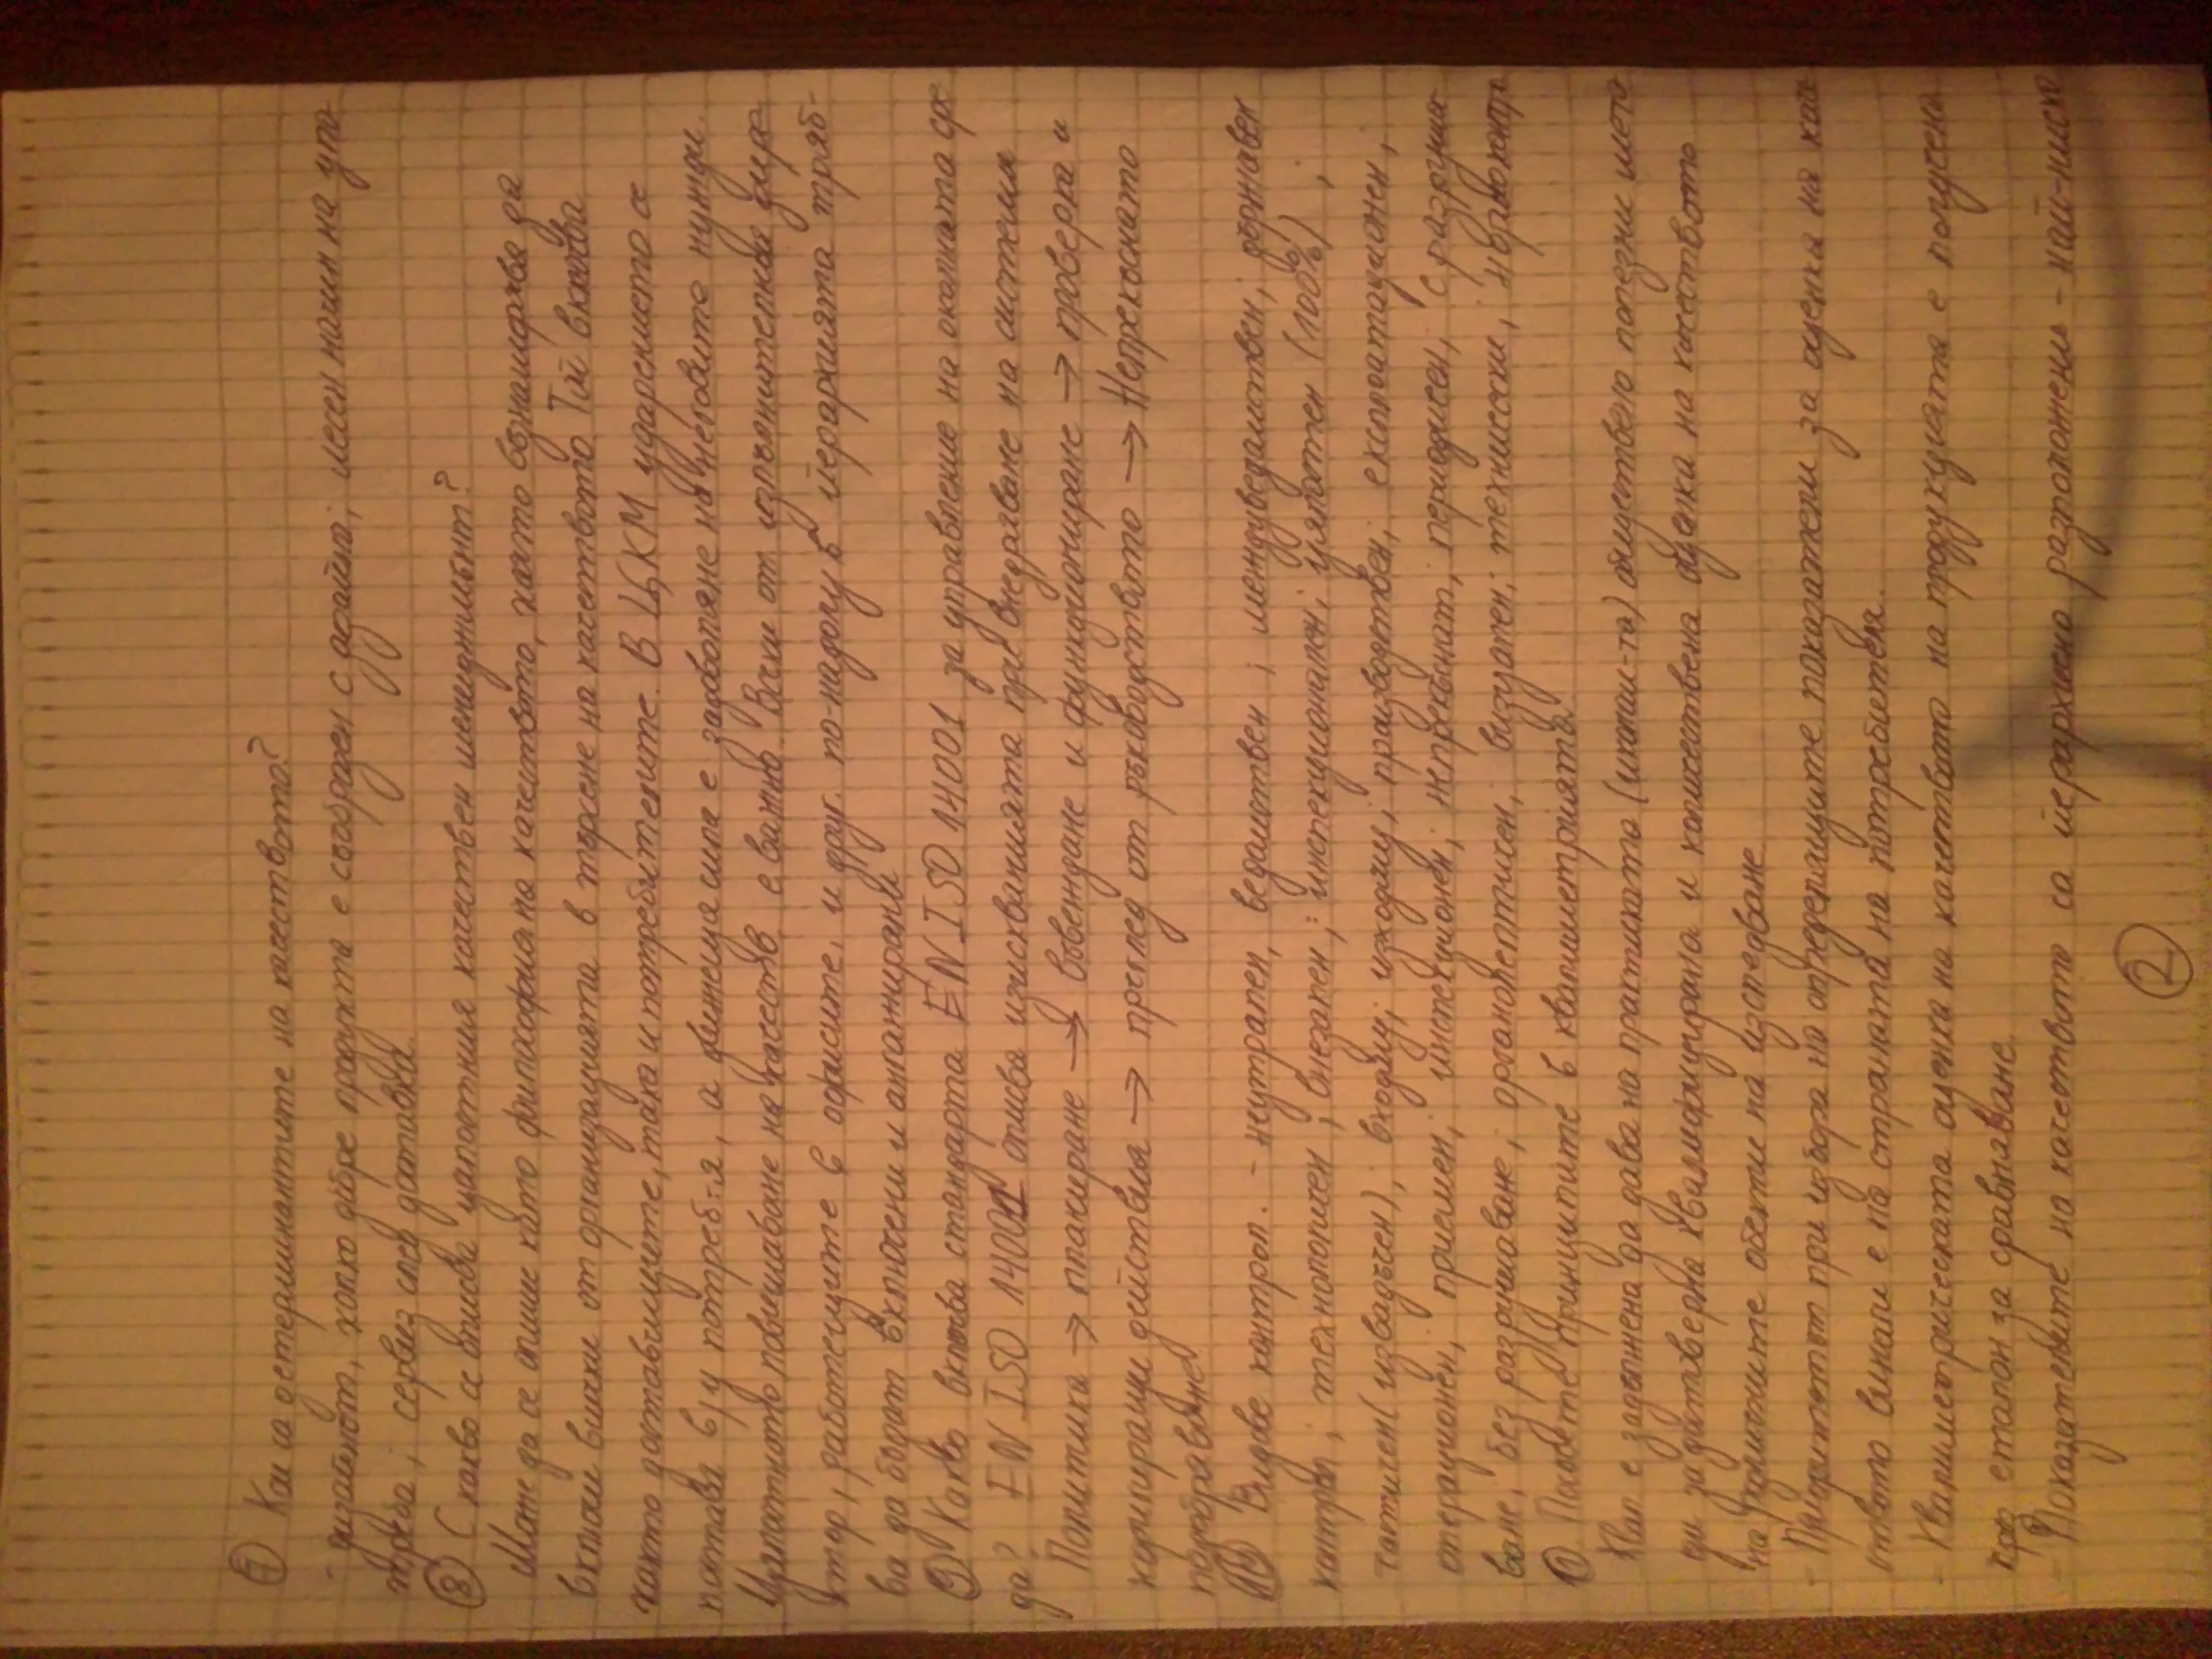 ⑦ Кои са детерминантите на качеството?
- дизайнът, колко добре продукта е съобразен с дизайна; лесен начин на упо-
треба; сервиз след доставка.
⑧ С какво се вписва цялостния качествен мениджмънт?
Може да се опише като философия на качеството, която възнамерява да
включи всички от организацията в търсене на качеството. Той включва
както доставчиците, така и потребителите. В ЦКМ ударението се
поставя в/у потреб-я, а движеща сила е задоволяване на неговите нужди.
Цялостното повишаване на качеств. е важно. Всеки от изпълнителния дире-
ктор, работещите в офисите, и друг. по-надолу в йерархията тряб-
ва да бъдат включени и ангажирани
⑨ Какво включва стандарта EN ISO 14001 за управление на околната сре-
да? EN ISO 14001 описва изискванията при внедряване на система
Политика → планиране → въвеждане и функциониране → проверка и
коригиращи действия → преглед от ръководството → Непрекъснато
подобряване
⑩ Видове контрол. - неутрален, ведомствен; междуведомствен; държавен
контрол; технологичен; внезапен; инспекционален; цялостен (100%);
(извадъчен); входящ; изходящ; производствен; експлоатационен;
операционен, приемен, инспекционен; непрекъснат, периодичен, с разруша-
ване, без разрушаване; органолептичен, визуален; технически;
① Посочете принципите в квалиметрията?
Квал. е задължена да дава на практиката обществено полезни мето-
ди за достоверна квалифицирана и количествена оценка на качеството
на различните обекти на изследване.
- Приоритетът при избора на определящите показатели за оценка на каче-
ството винаги е на страната на потребителя.
- Квалиметрическата оценка на качеството на продукцията е получена
при еталон за сравняване.
- Показателите на качеството са йерархично разположени - най-ниско
②